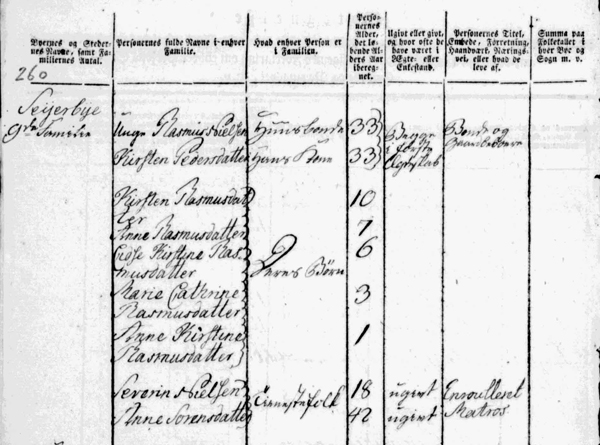 Byernes og Steder-
nes Navne, samt Fa-
miliernes Antal.
Personernes fulde Navne i enhver
Familie.
Hvad enhver Person er
i Familien.
Perso-
nernes
Alder,
det lø-
bende Al-
ders Aar
iberegn-
net.
Ugivt eller givt,
og hvor ofte de
have været i
Ægte- eller
Enkestand.
Personernes Titel,
Embede, Forretning,
Haandværk, Nærings-
vei, eller hvad de
leve af.
Summa paa
Folketallet i
hver By og
Sogn m. v.
260
Seijerbye
9de Familie
Unge Rasmus Nielsen Huusbonde 33 Begge Bonde og
i første Gaardbeboere
Kirsten Pedersdatter Hans Kone 33 Egteskab
Kirsten Rasmusdat 10
ter
Anne Rasmusdatter 7
Kirstine Ras- 6
musdatter Deres Børn
Marie Cathrine 3
Rasmusdatter
Anne Kirstine 1
Rasmusdatter
Severin Nielsen Tienestefolk 18 ugivt Enroulleret
Anne Sorensdatter 42 ugivt Matros